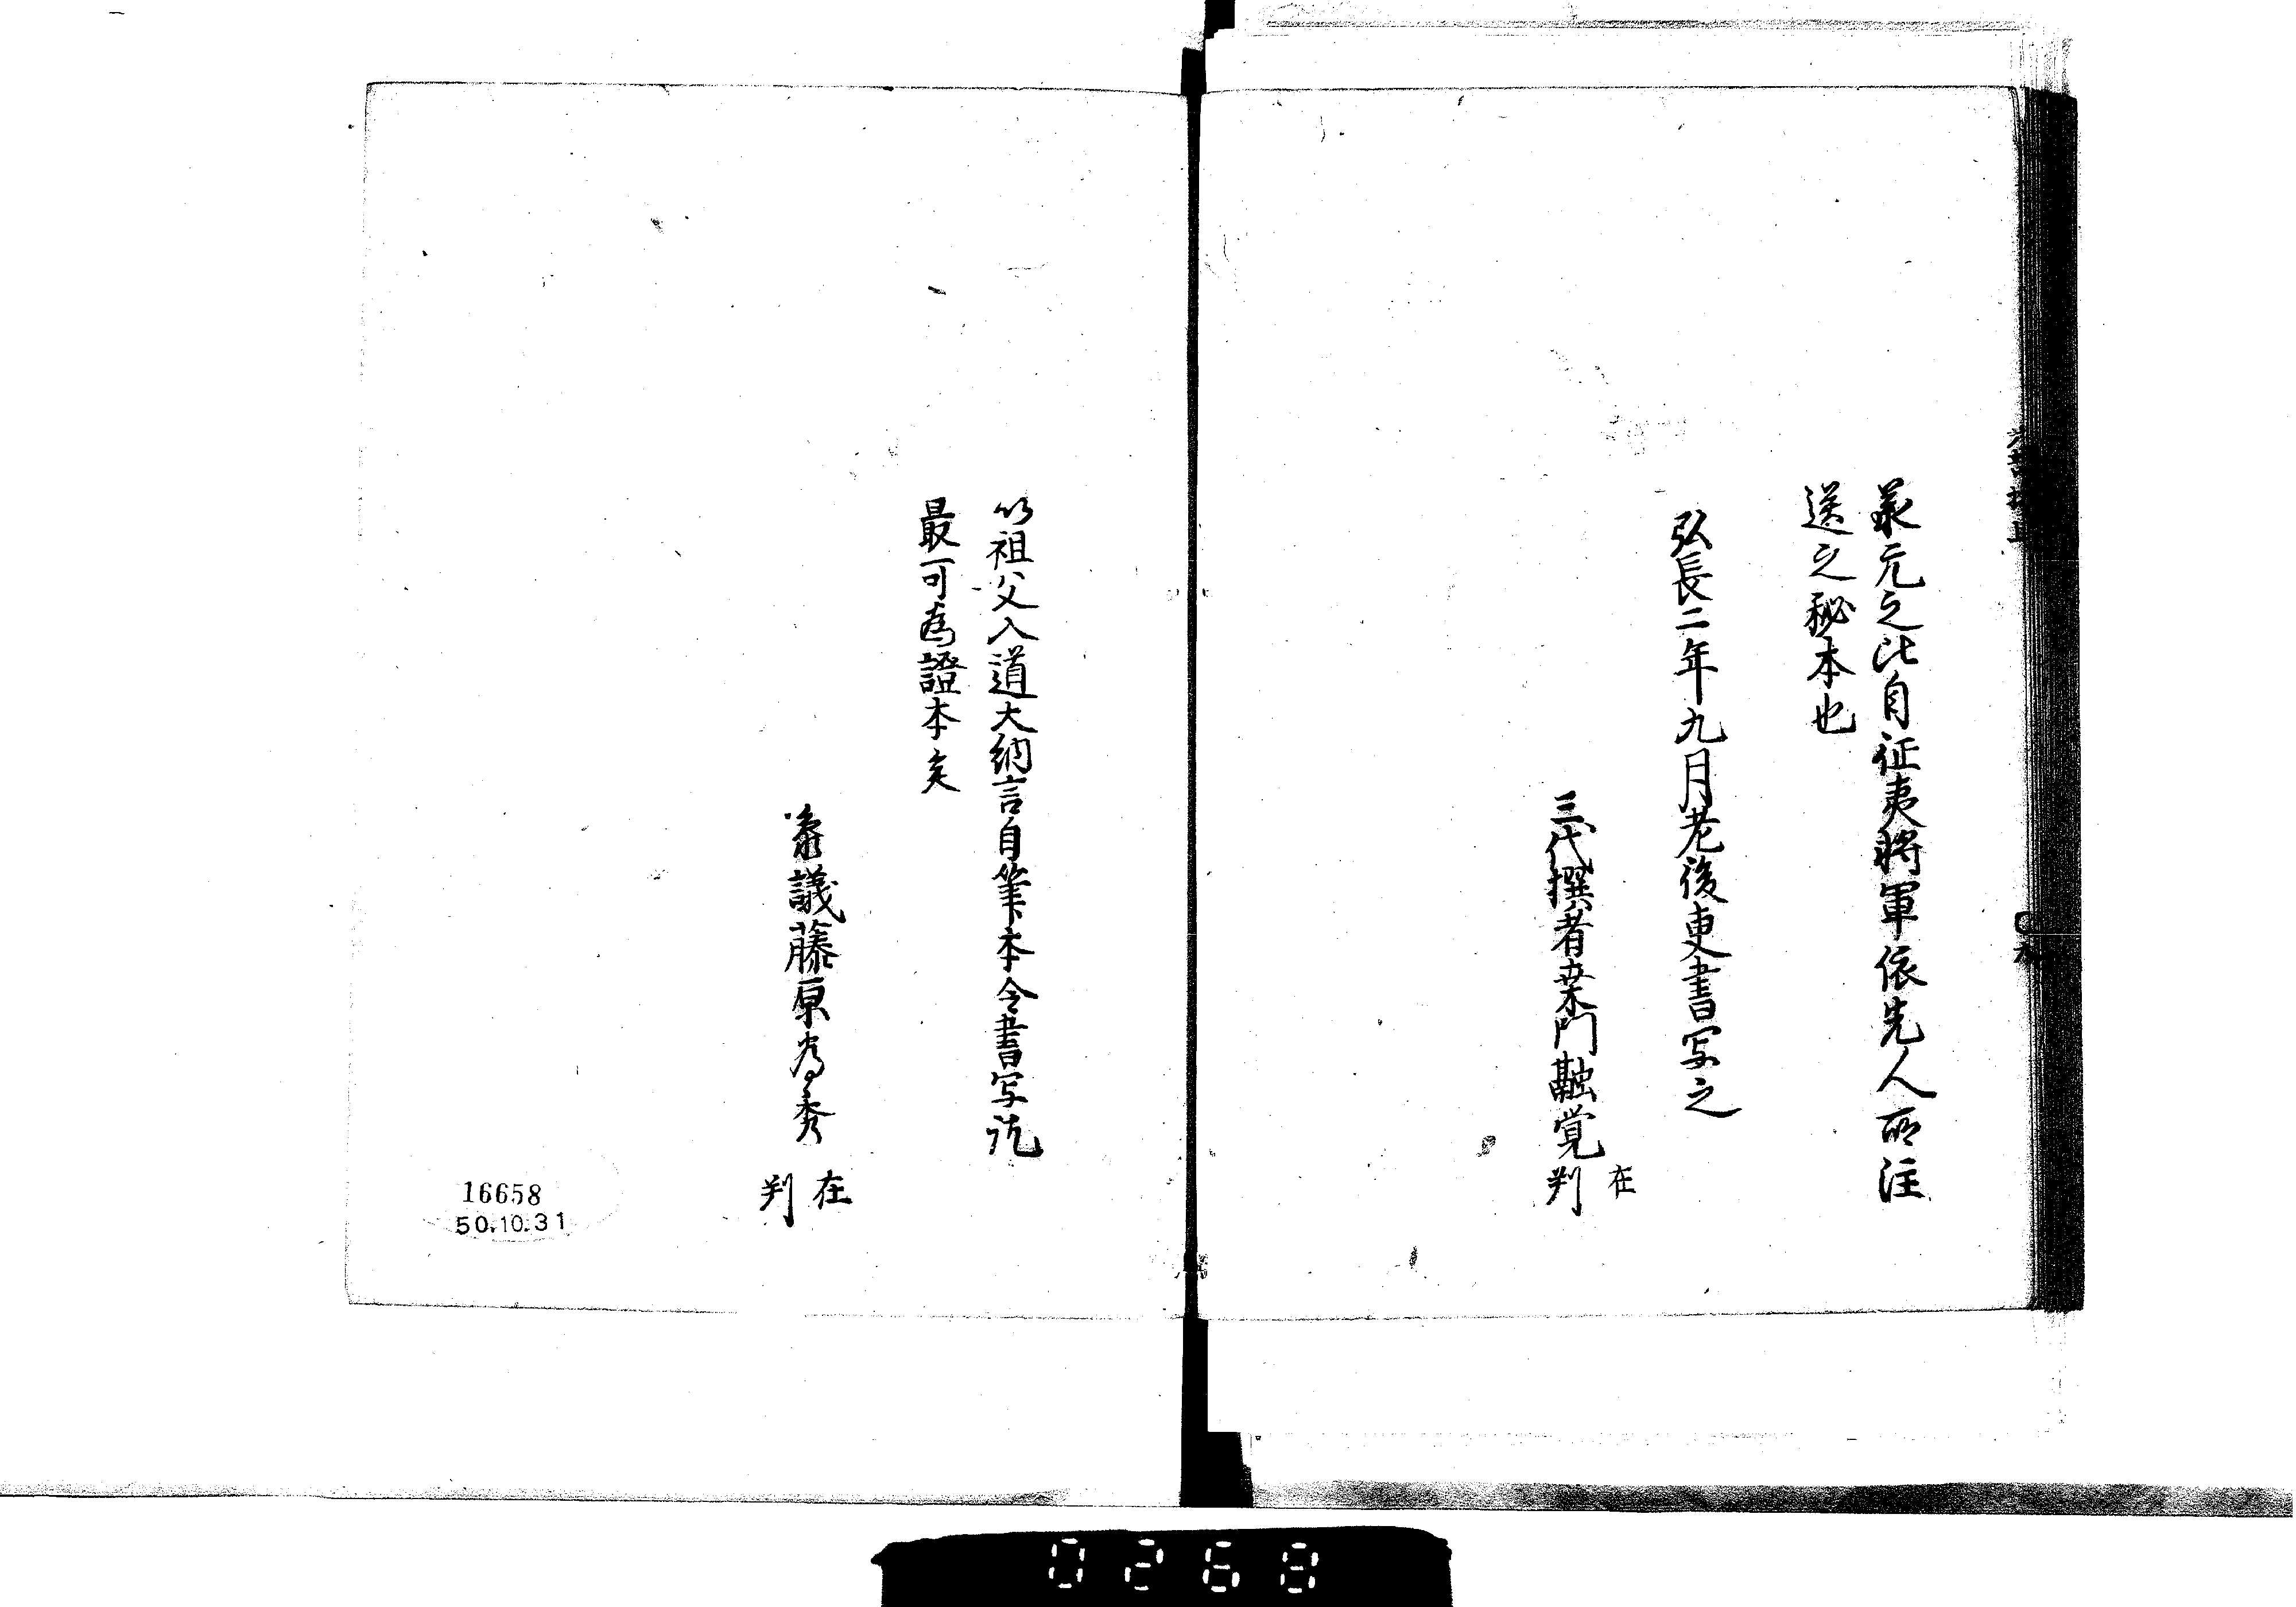 承元之比自征夷将軍依先人所注
送之秘本也
弘長二年九月老後更書写之
三代撰者桑門融覚
在
判
以祖父入道大納言自筆本令書写訖
最可為證本矣
参議藤原為秀
在
判
16658
50.10.31
0268